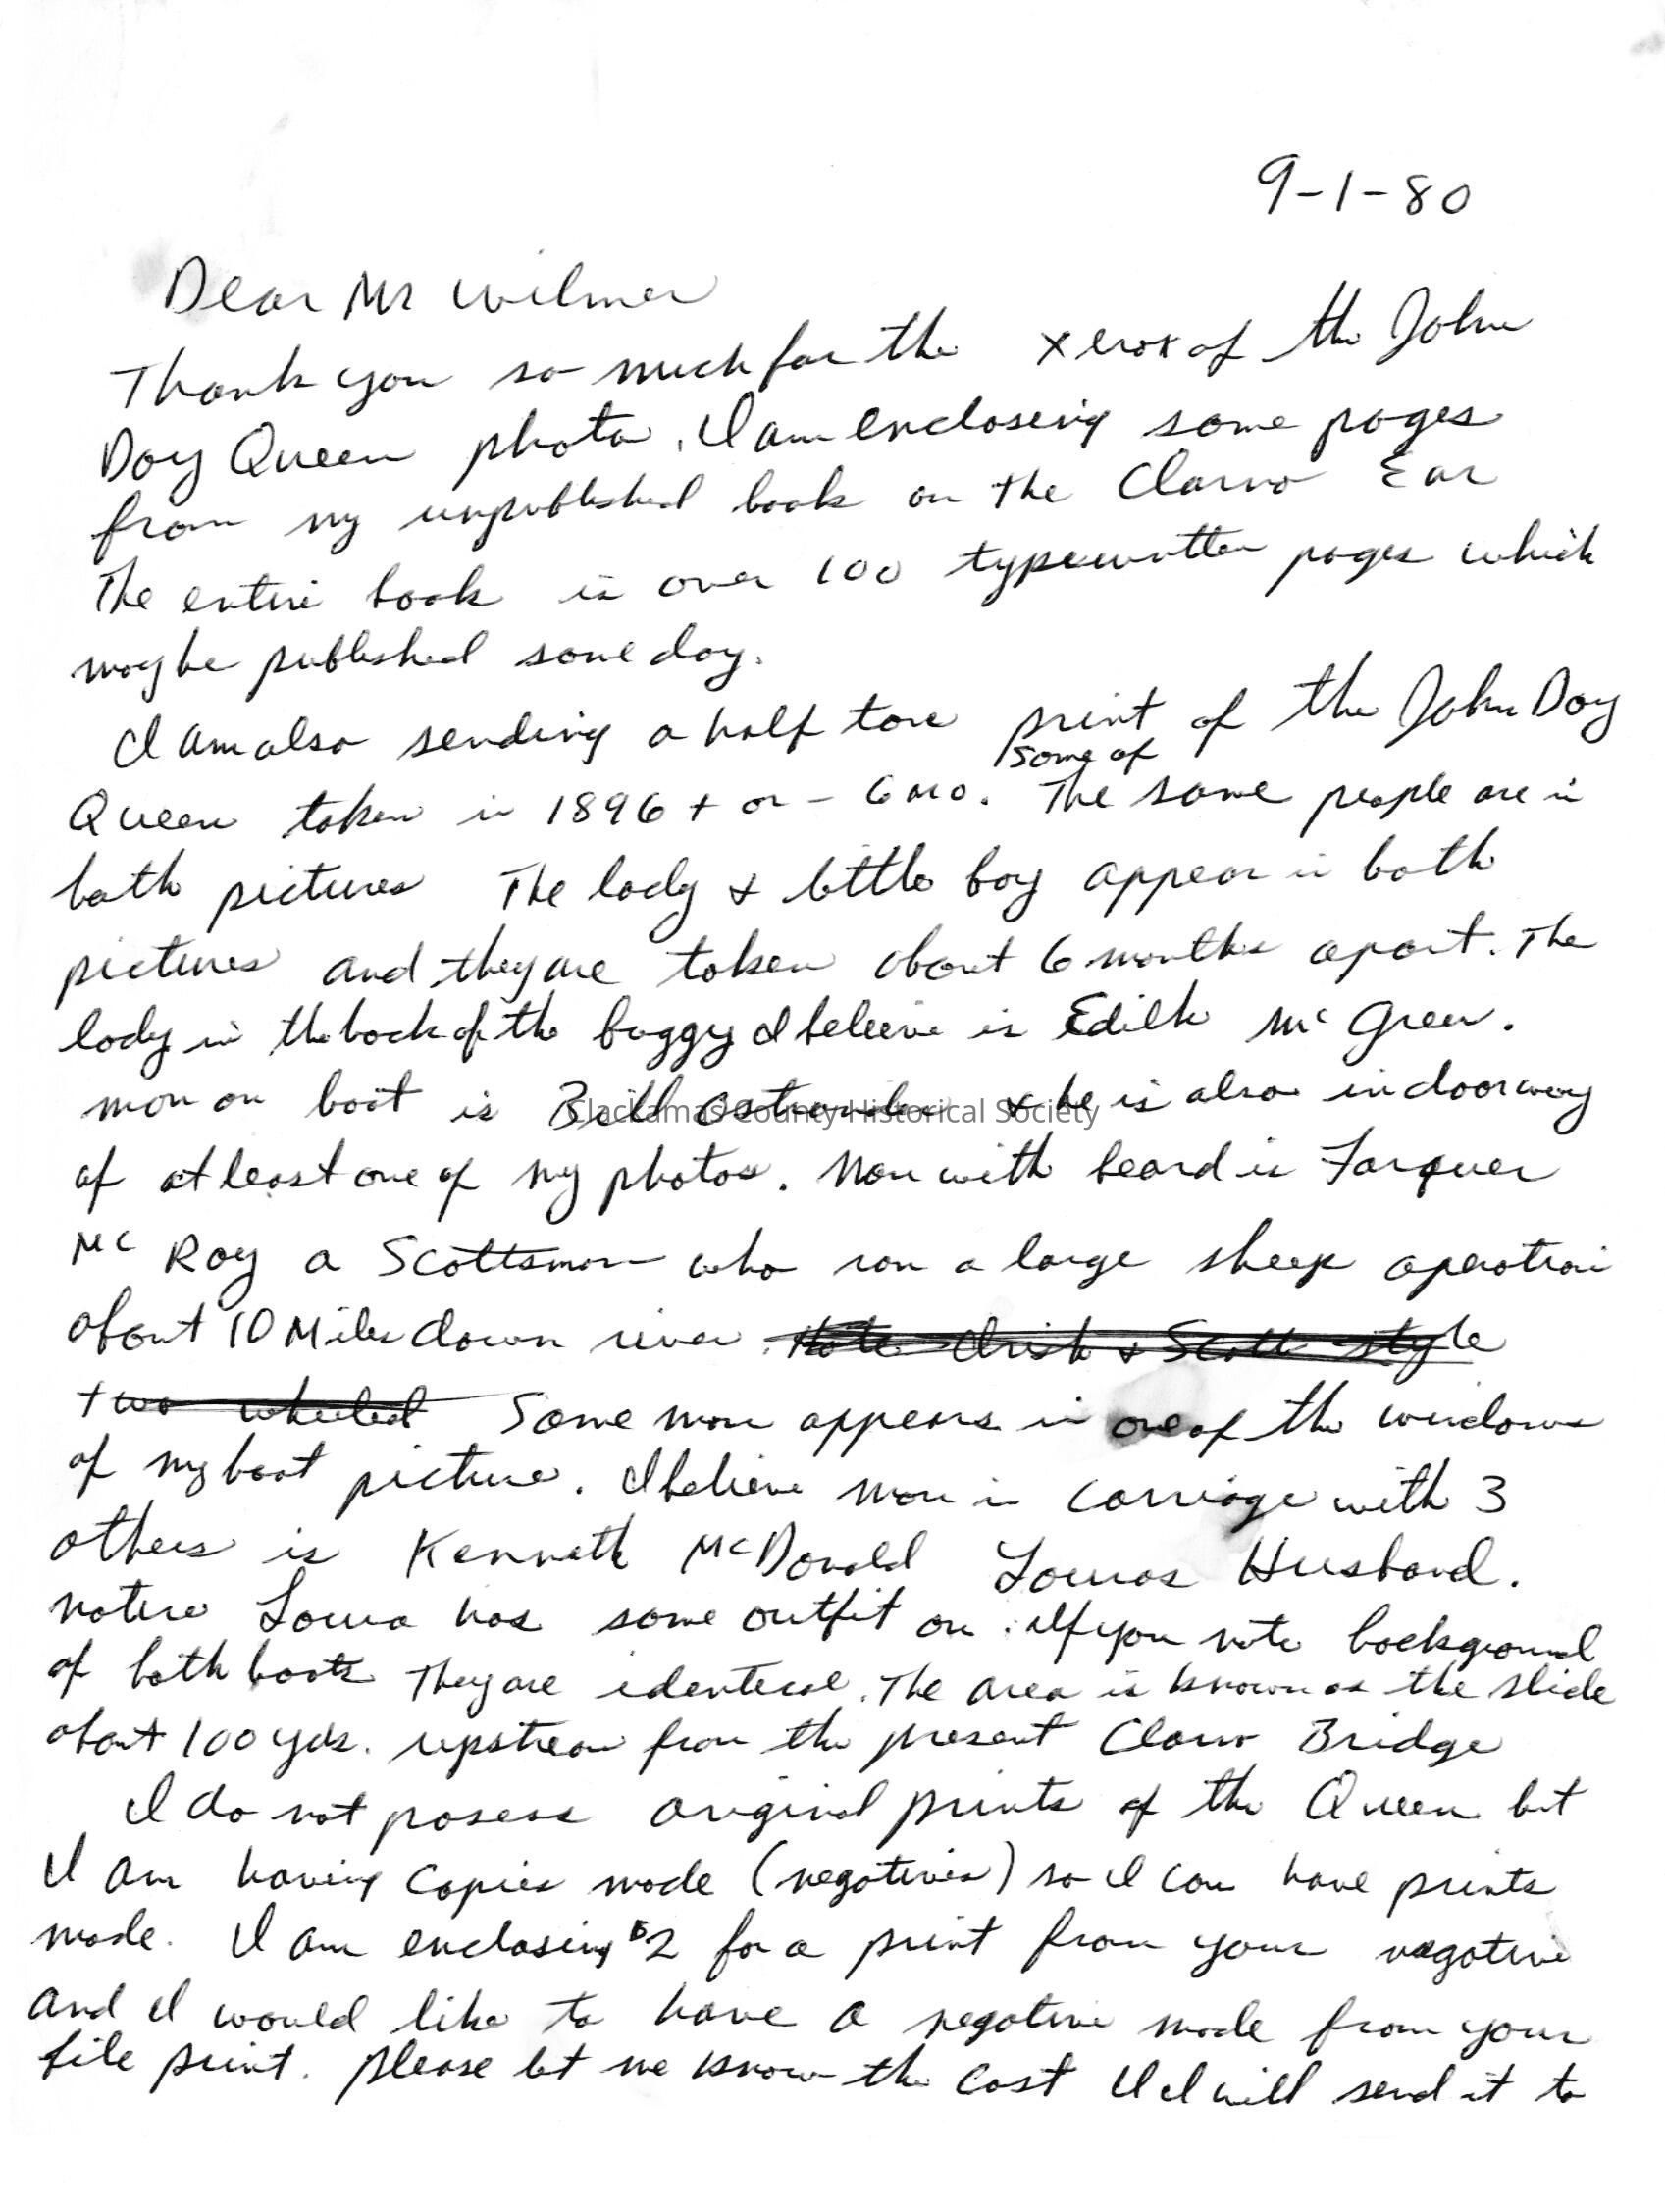 9-1-80
Dear Mr Wilmer
Thank you so much for the xerox of the John
Day Queen photo. I am enclosing some pages
from my unpublished book on the Clarno Ear
The entire book is over 100 typewritten pages which
maybe published some day.
I am also sending a half tone print of the John Day
some of
Queen taken in 1896 + or - 6 mo. The same people are in
both pictures The lady & little boy appear in both
pictures and they are taken about 6 months apart. The
lady in the back of the buggy I beleive is Edith McGreer.
man on boat is Bill Ostrander & he is also in doorway
Clackamas County Historical Society
of at least one of my photos. Man with beard is Farquer
McRoy a Scottsman who ran a large sheep operation
about 10 Miles down river. Note Irish & Scott style
two wheeled Same man appears in one of the windows
of my boat picture. I believe man in carriage with 3
others is Kenneth McDonald Lounas Husband.
notice Louna has same outfit on. If you note background
of both boats They are identical. The area is known as the slide
about 100 yds. upstream from the present Clarno Bridge
I do not posess original prints of the Queen but
I am having copies made (negatives) so I can have prints
made. I am enclosing $2 for a print from your negative
and I would like to have a negative made from your
file print. please let me know the cost & I will send it to